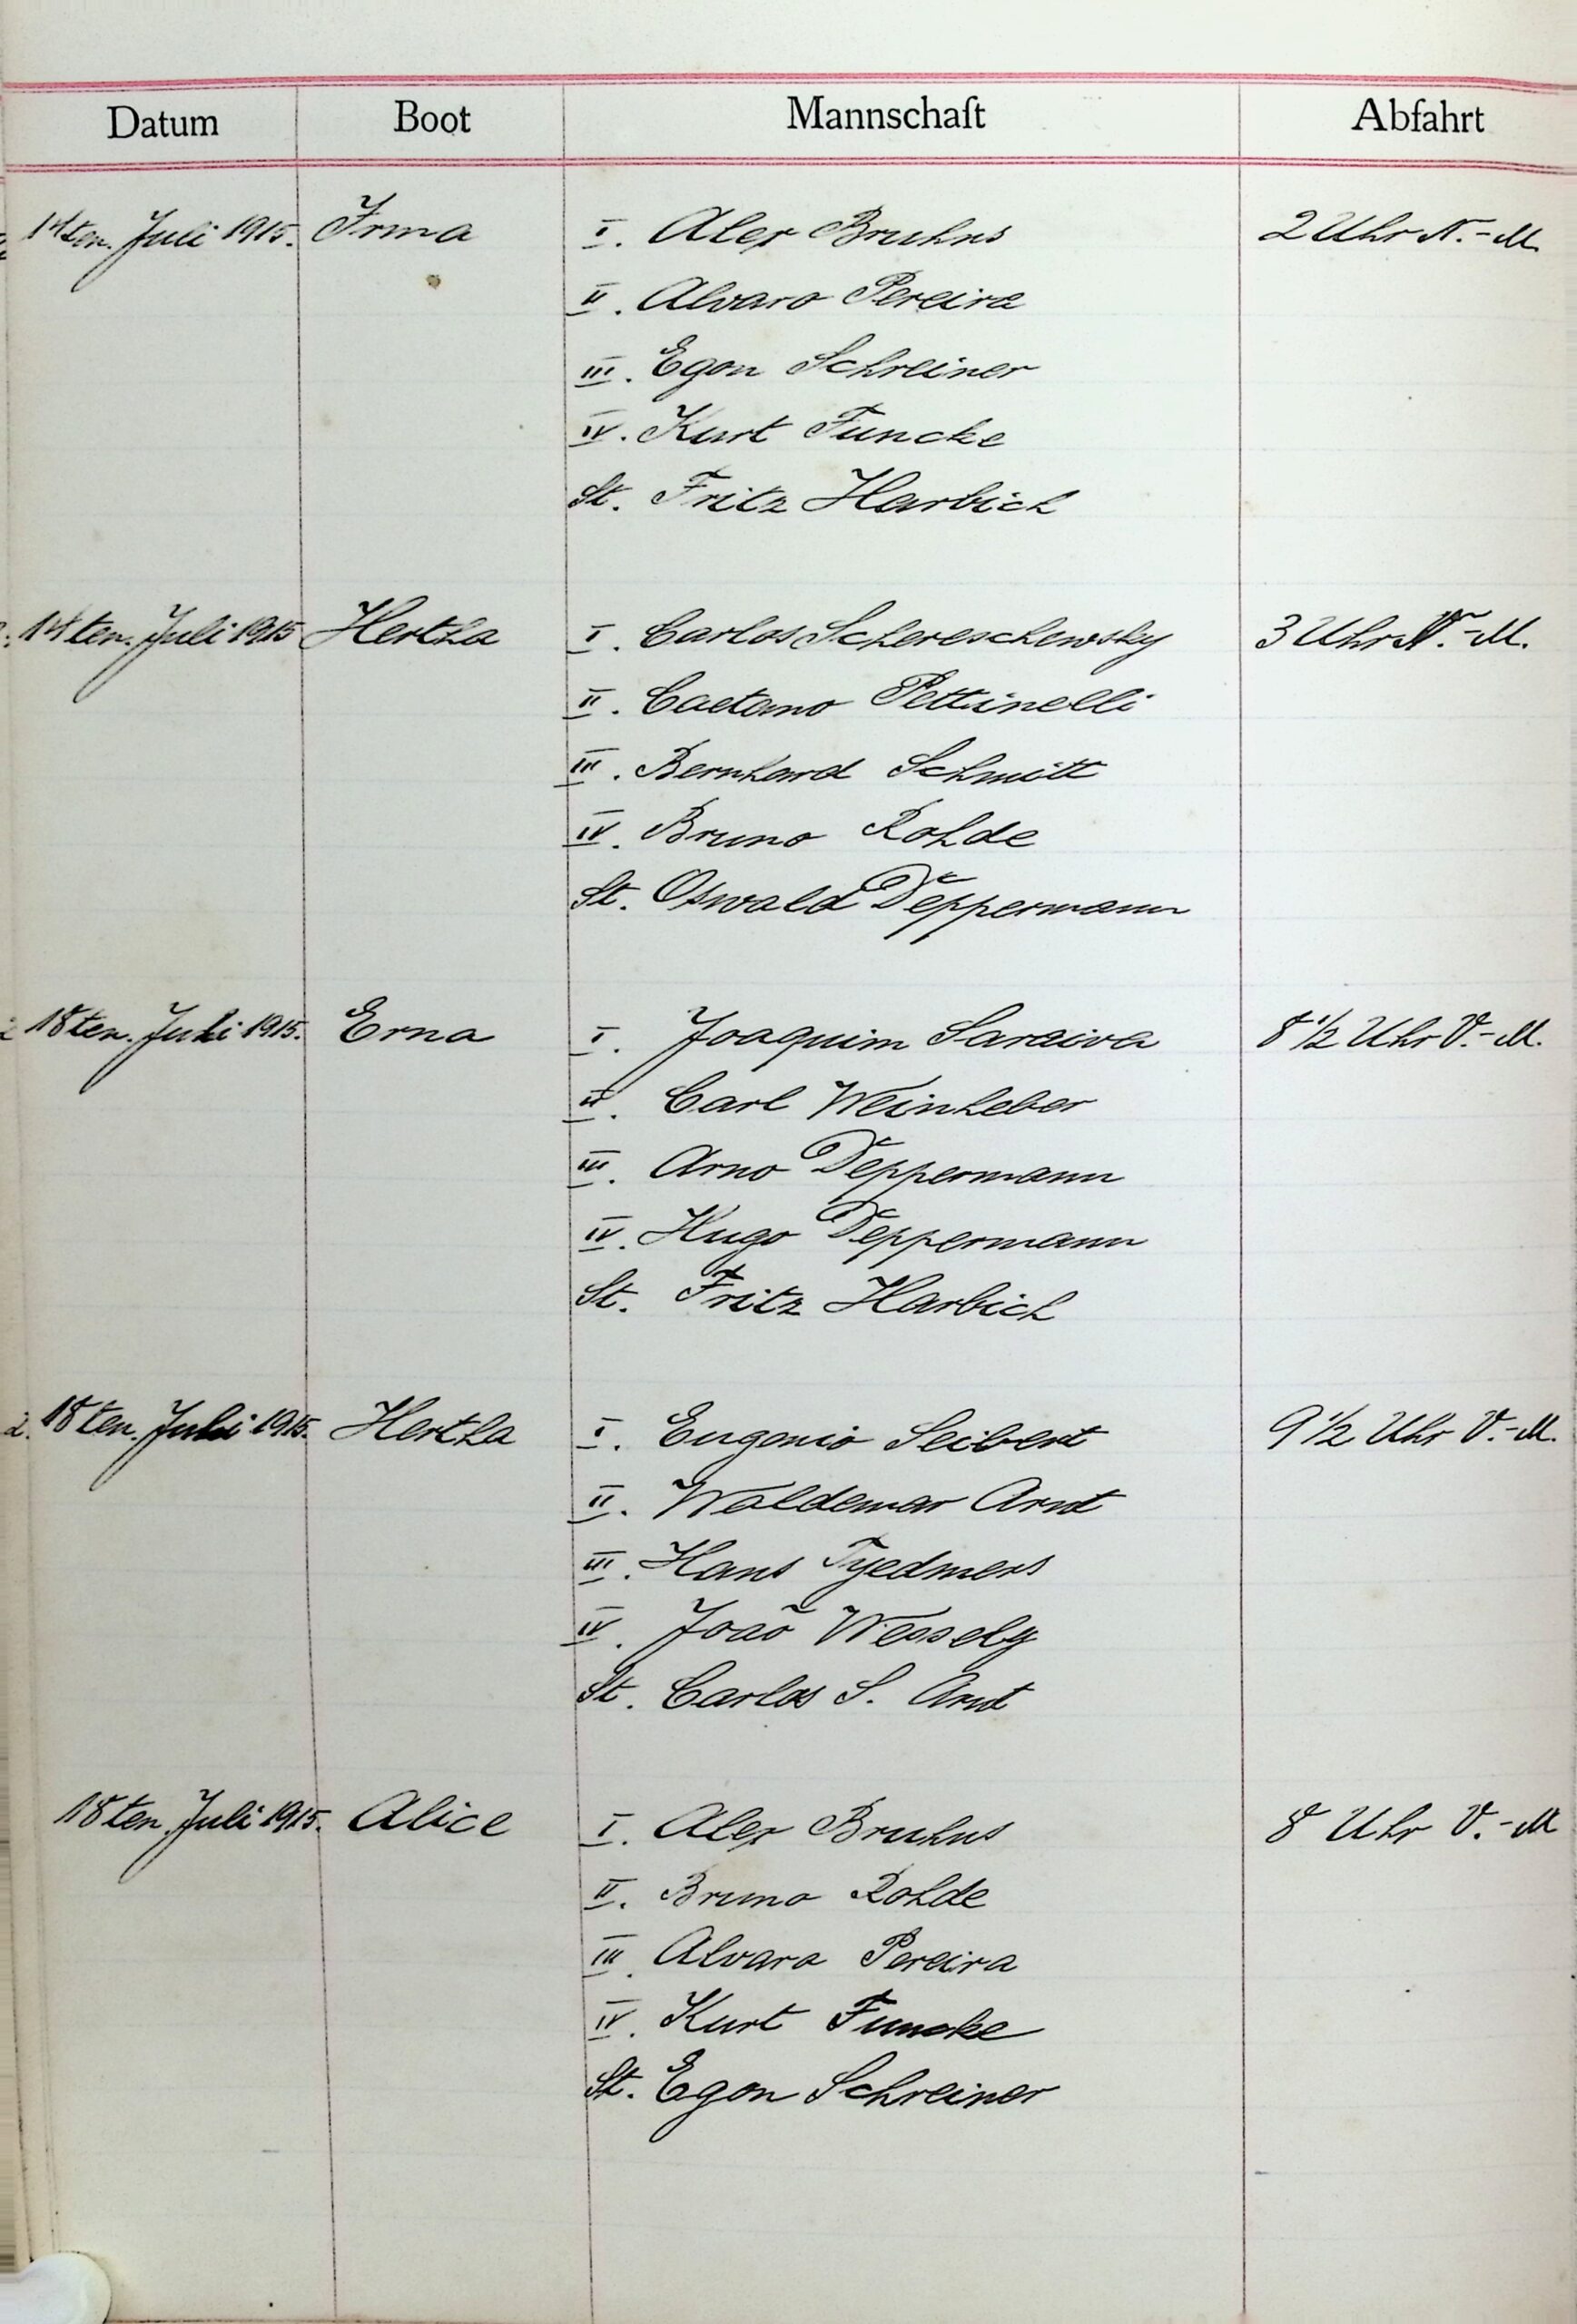 Datum Boot Mannschaft Abfahrt
14ten. Juli 1915. Irma I. Alex Bruhns 2 Uhr N.-M.
II. Alvaro Pereira
III. Egon Schreiner
IV. Kurt Funcke
St. Fritz Harbich
14ten. Juli 1915 Hertha I. Carlos Schereschewsky 3 Uhr N.-M.
II. Caetano Pettinelli
III. Bernhard Schmitt
IV. Bruno Rohde
St. Oswald Deppermann
18ten. Juli 1915. Erna I. Joaquim Saraiva 8 1/2 Uhr V.-M.
II. Carl Weinheber
III. Arno Deppermann
IV. Hugo Deppermann
St. Fritz Harbich
18ten. Juli 1915. Hertha I. Eugenio Seibert 9 1/2 Uhr V.-M.
II. Waldemar Arnt
III. Hans Tyedmers
IV. João Wessely
St. Carlos S. Arnt
18ten. Juli 1915. Alice I. Alex Bruhns 8 Uhr V.-M
II. Bruno Rohde
III. Alvaro Pereira
IV. Kurt Funcke
St. Egon Schreiner